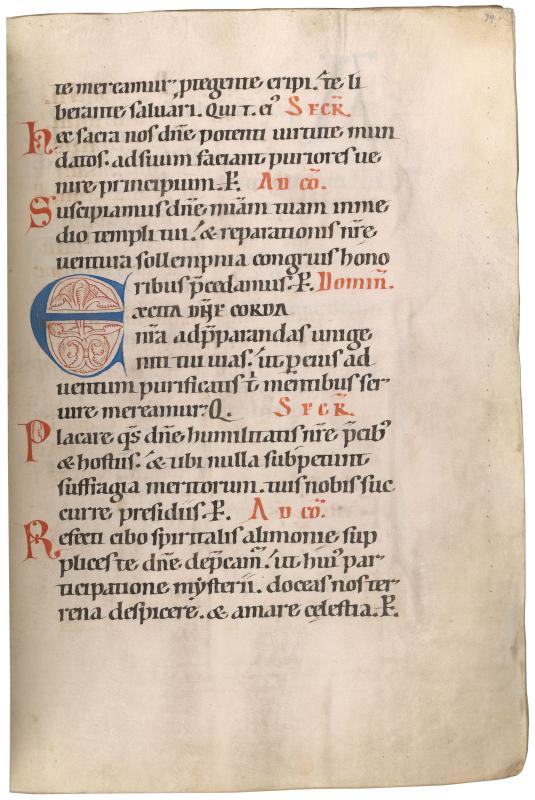 79.
te mereamur, ꝓtegente eripi. ⁊ te li
berante saluari. Qui t. c̄ SECR̄.
Hec sacra nos dn̄e potenti uirtute mun
datos. ad suum faciant puriores ue
nire principium. P. AD CŌ.
Suscipiamus dn̄e miām tuam in me
dio templi tui. & reparationis nr̄e
uentura sollempnia congruis hono
ribus p̄cedamus. P. Domin̄.
EXCITA DN̄E CORDA
nr̄a ad p̄parandas unige
niti tui uias. ut ꝑ eius ad
uentum purificatis t̄ mentibus ser
uire mereamur. Q. SECR̄.
Placare qs̄ dn̄e humilitatis nr̄e p̄cib⁹
& hostiis. & ubi nulla subpetunt
suffragia meritorum. tuis nobis suc
curre presidiis. P. AD CŌ.
Refecti cibo spiritalis alimonie sup
plices te dn̄e dep̄cam̄. ut hui⁹ par-
ticipatione mysterii. doceas nos ter-
rena despicere. & amare celestia. P.